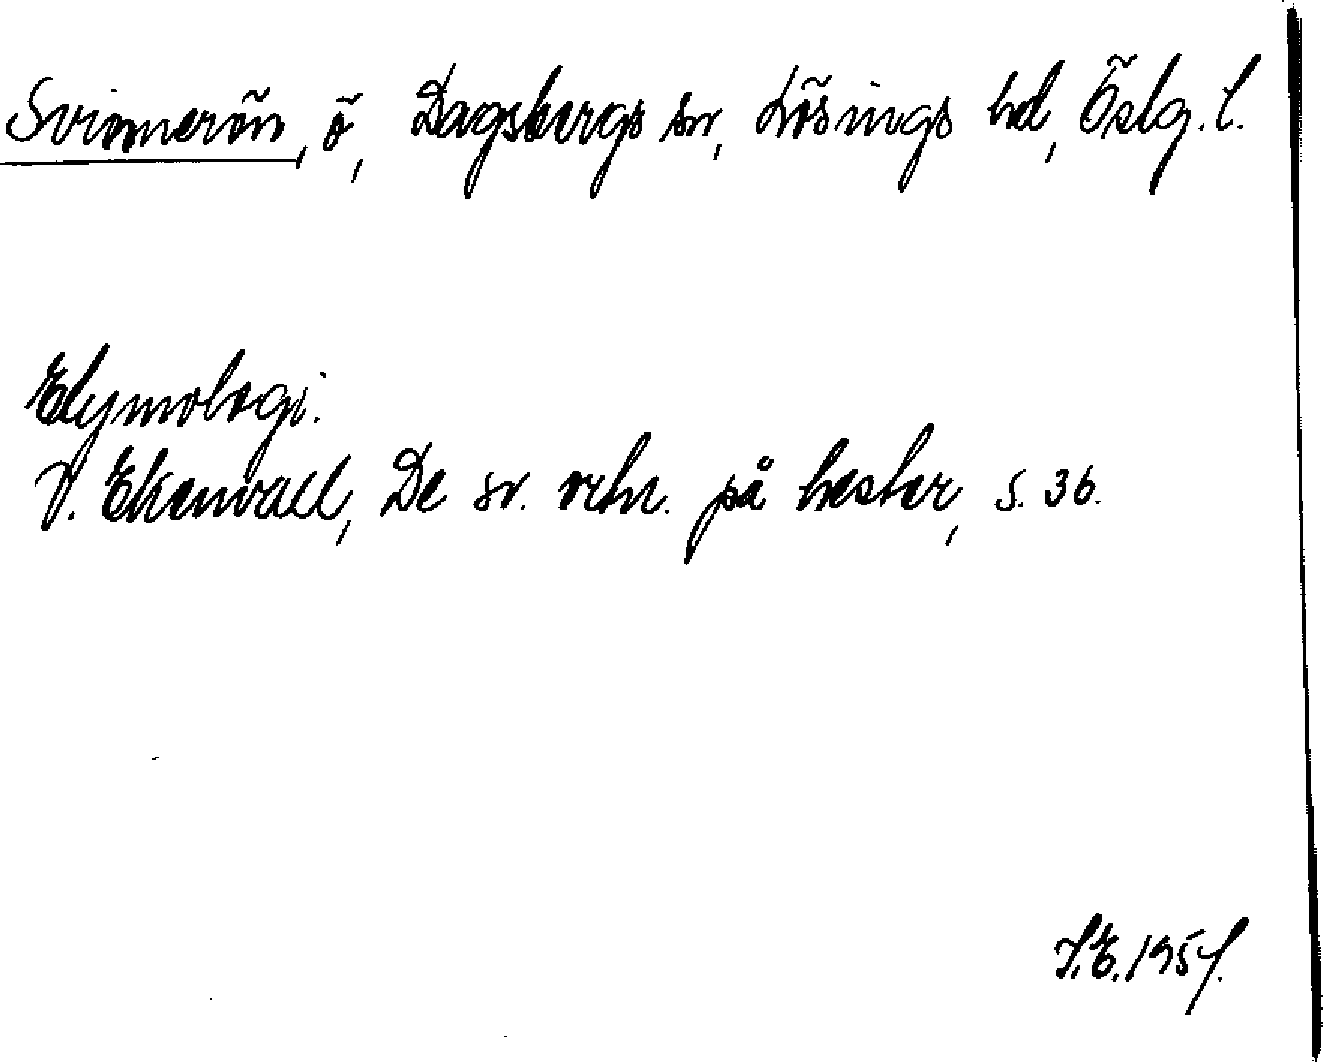 Svinnerön, ö, Dagsbergs sn, Lösings hd, Östg. l.
Etymologi.
V. Ekenvall, De sv. ortn. på hester, s. 36.
I.E. 1957.